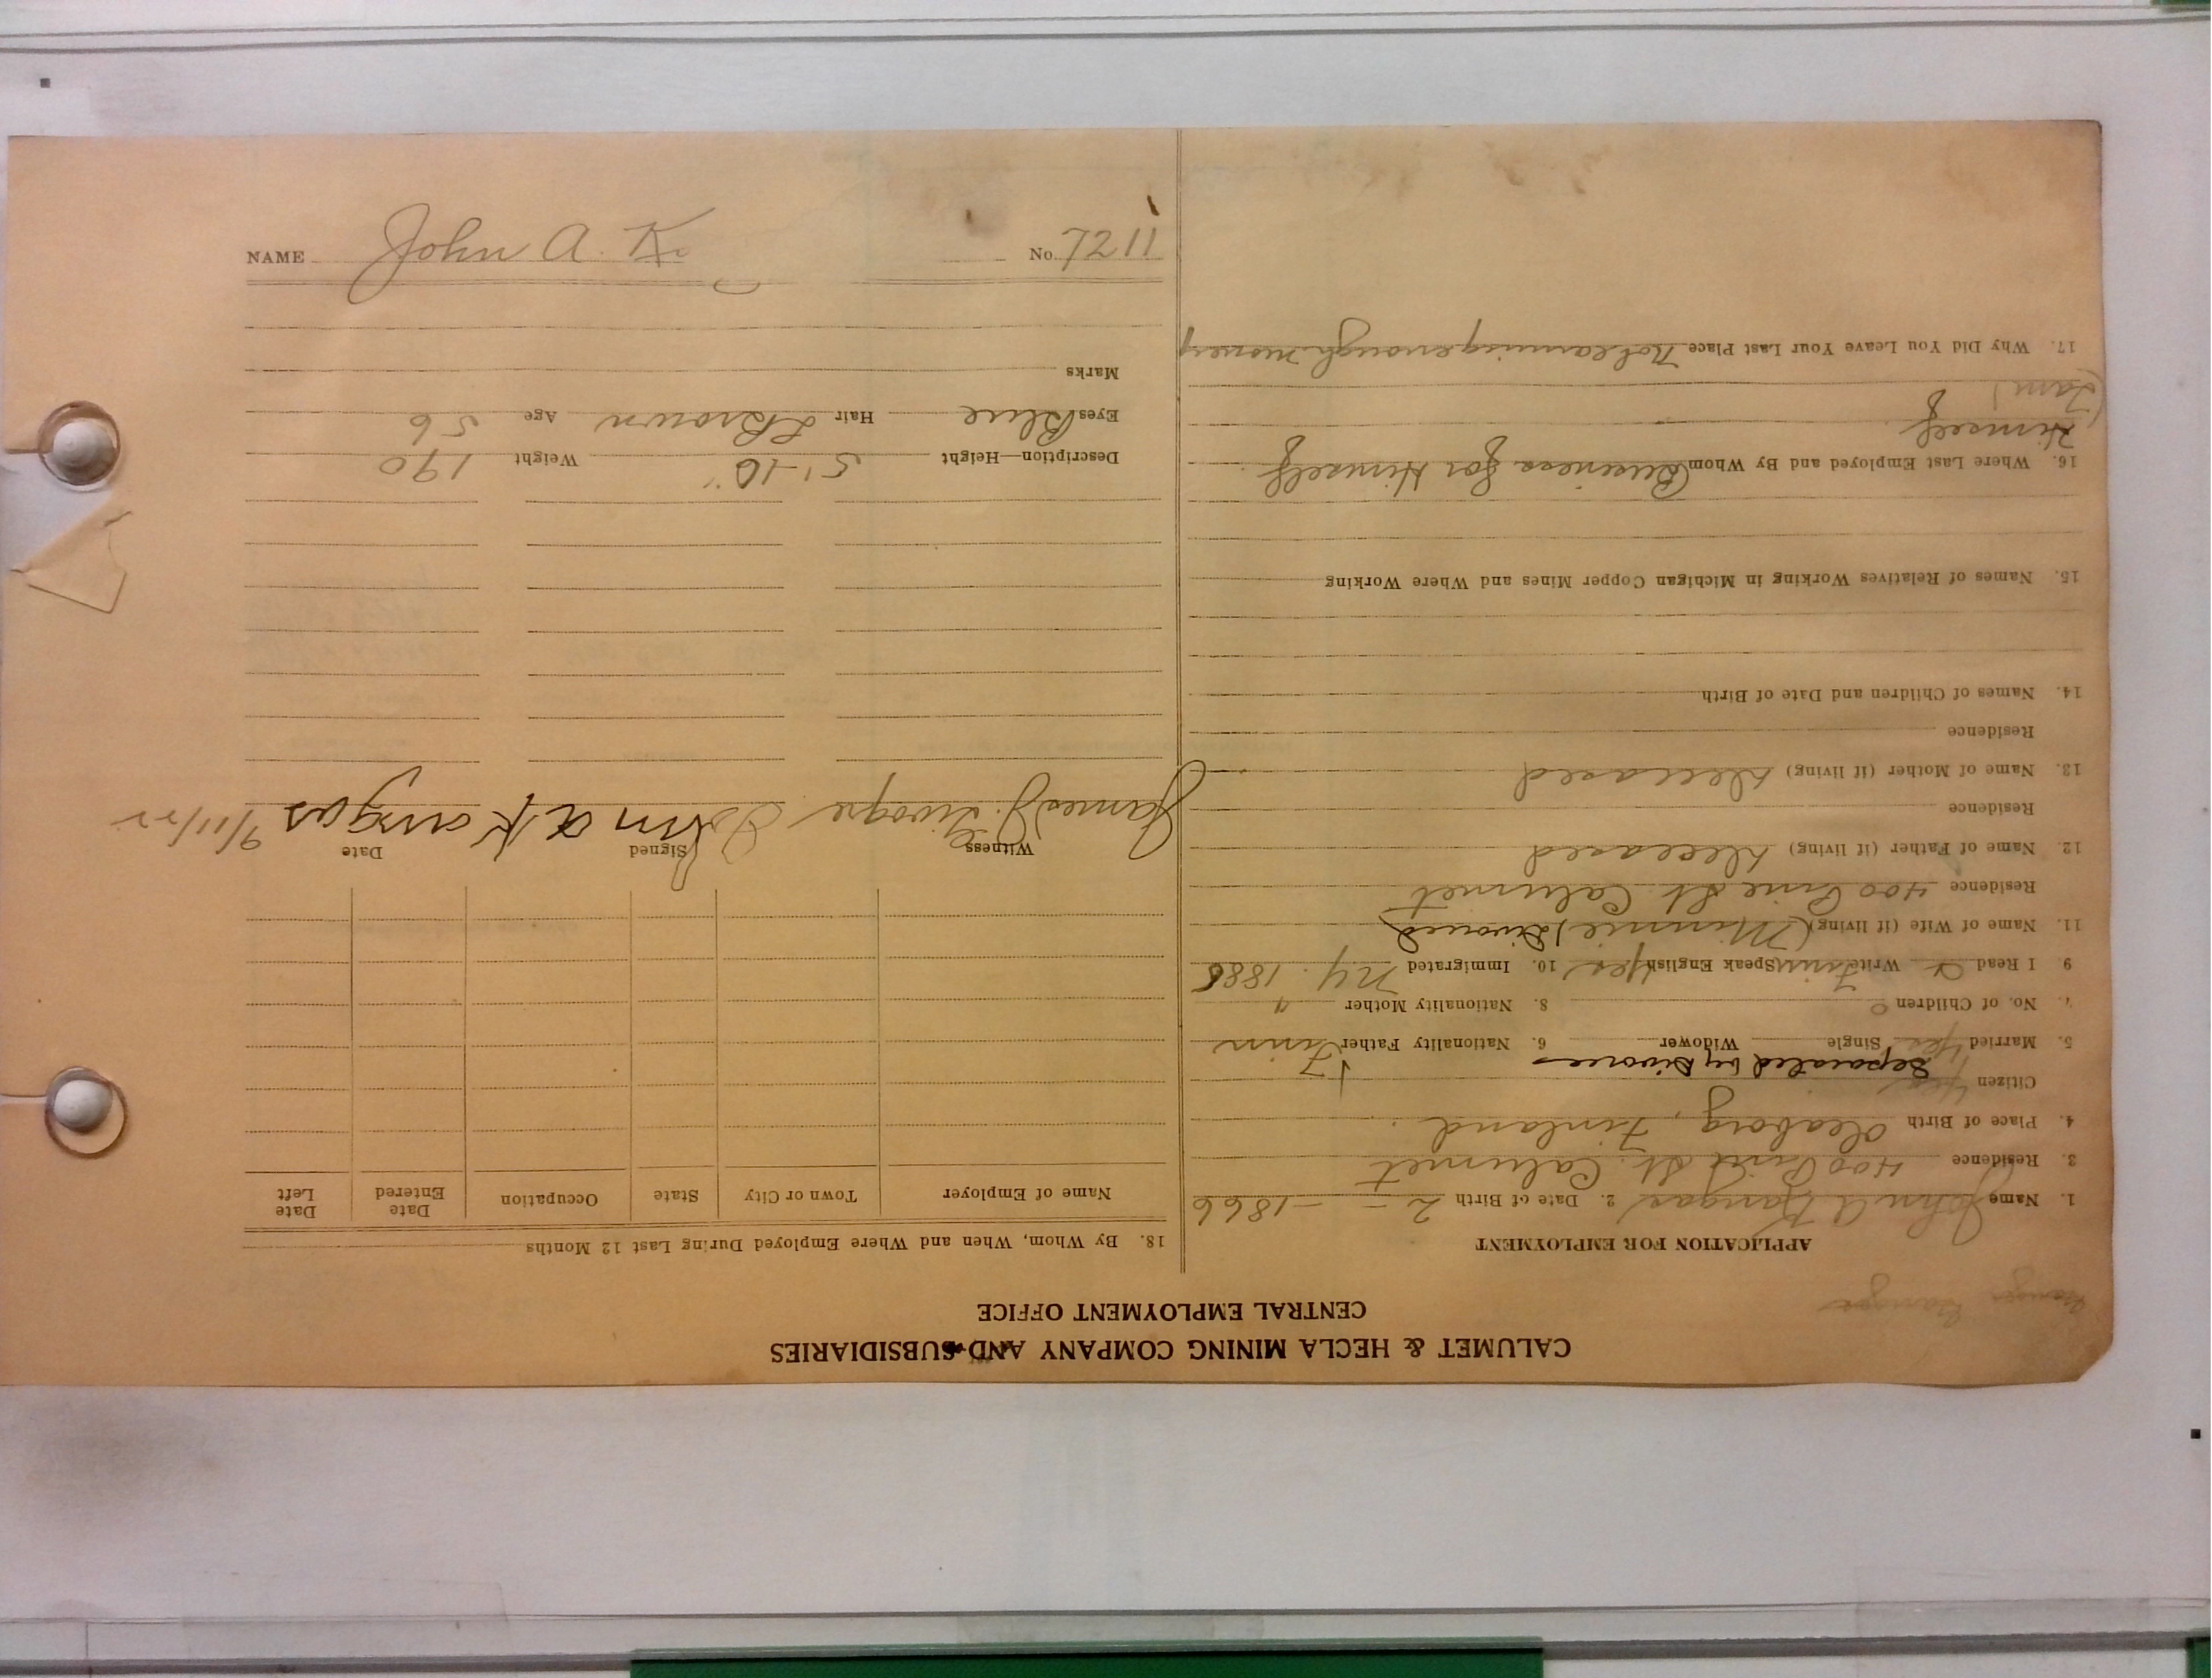 CALUMET & HECLA MINING COMPANY AND SUBSIDIARIES
CENTRAL EMPLOYMENT OFFICE
APPLICATION FOR EMPLOYMENT
1. Name John A Kangas 2. Date of Birth - 2 - 1866
3. Residence 400 Pine St. Calumet
4. Place of Birth Oleaborg, Finland.
Citizen Yes
Separated by Divorce
5. Married Yes Single Widower 6. Nationality Father Finn
7. No. of Children 0 8. Nationality Mother "
9. I Read & Write Finn Speak English Yes 10. Immigrated N.Y. 1885
11. Name of Wife (if living) (Minnie) Divorced
Residence 400 Pine St. Calumet
12. Name of Father (if living) Deceased
Residence
13. Name of Mother (if living) Deceased
Residence
14. Names of Children and Date of Birth
15. Names of Relatives Working in Michigan Copper Mines and Where Working
16. Where Last Employed and By Whom Business for Himself
Himself
17. Why Did You Leave Your Last Place Not earning enough money
18. By Whom, When and Where Employed During Last 12 Months
Name of Employer Town or City State Occupation Date Entered Date Left
Witness Signed Date
James J. John A Kangas 9/11/22
Description—Height 5'-10" Weight 190
Eyes Blue Hair L Brown Age 56
Marks
NAME John A. K No. 7211